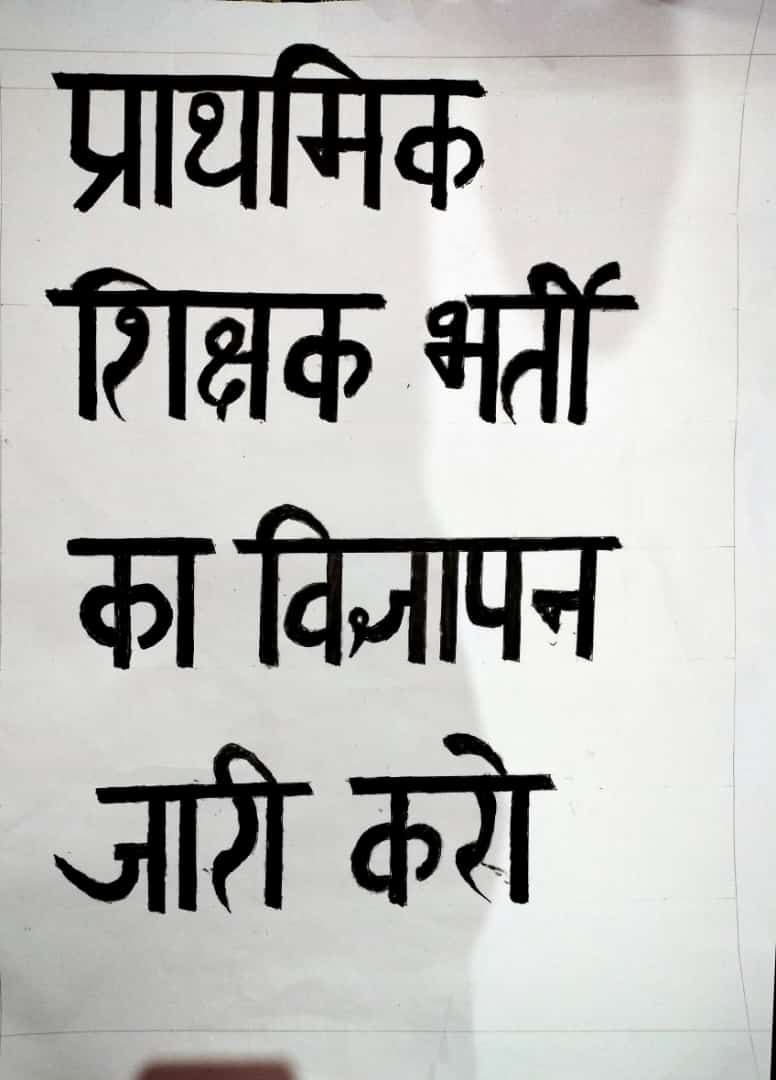 प्राथमिक
शिक्षक भर्ती
का विज्ञापन
जारी करो